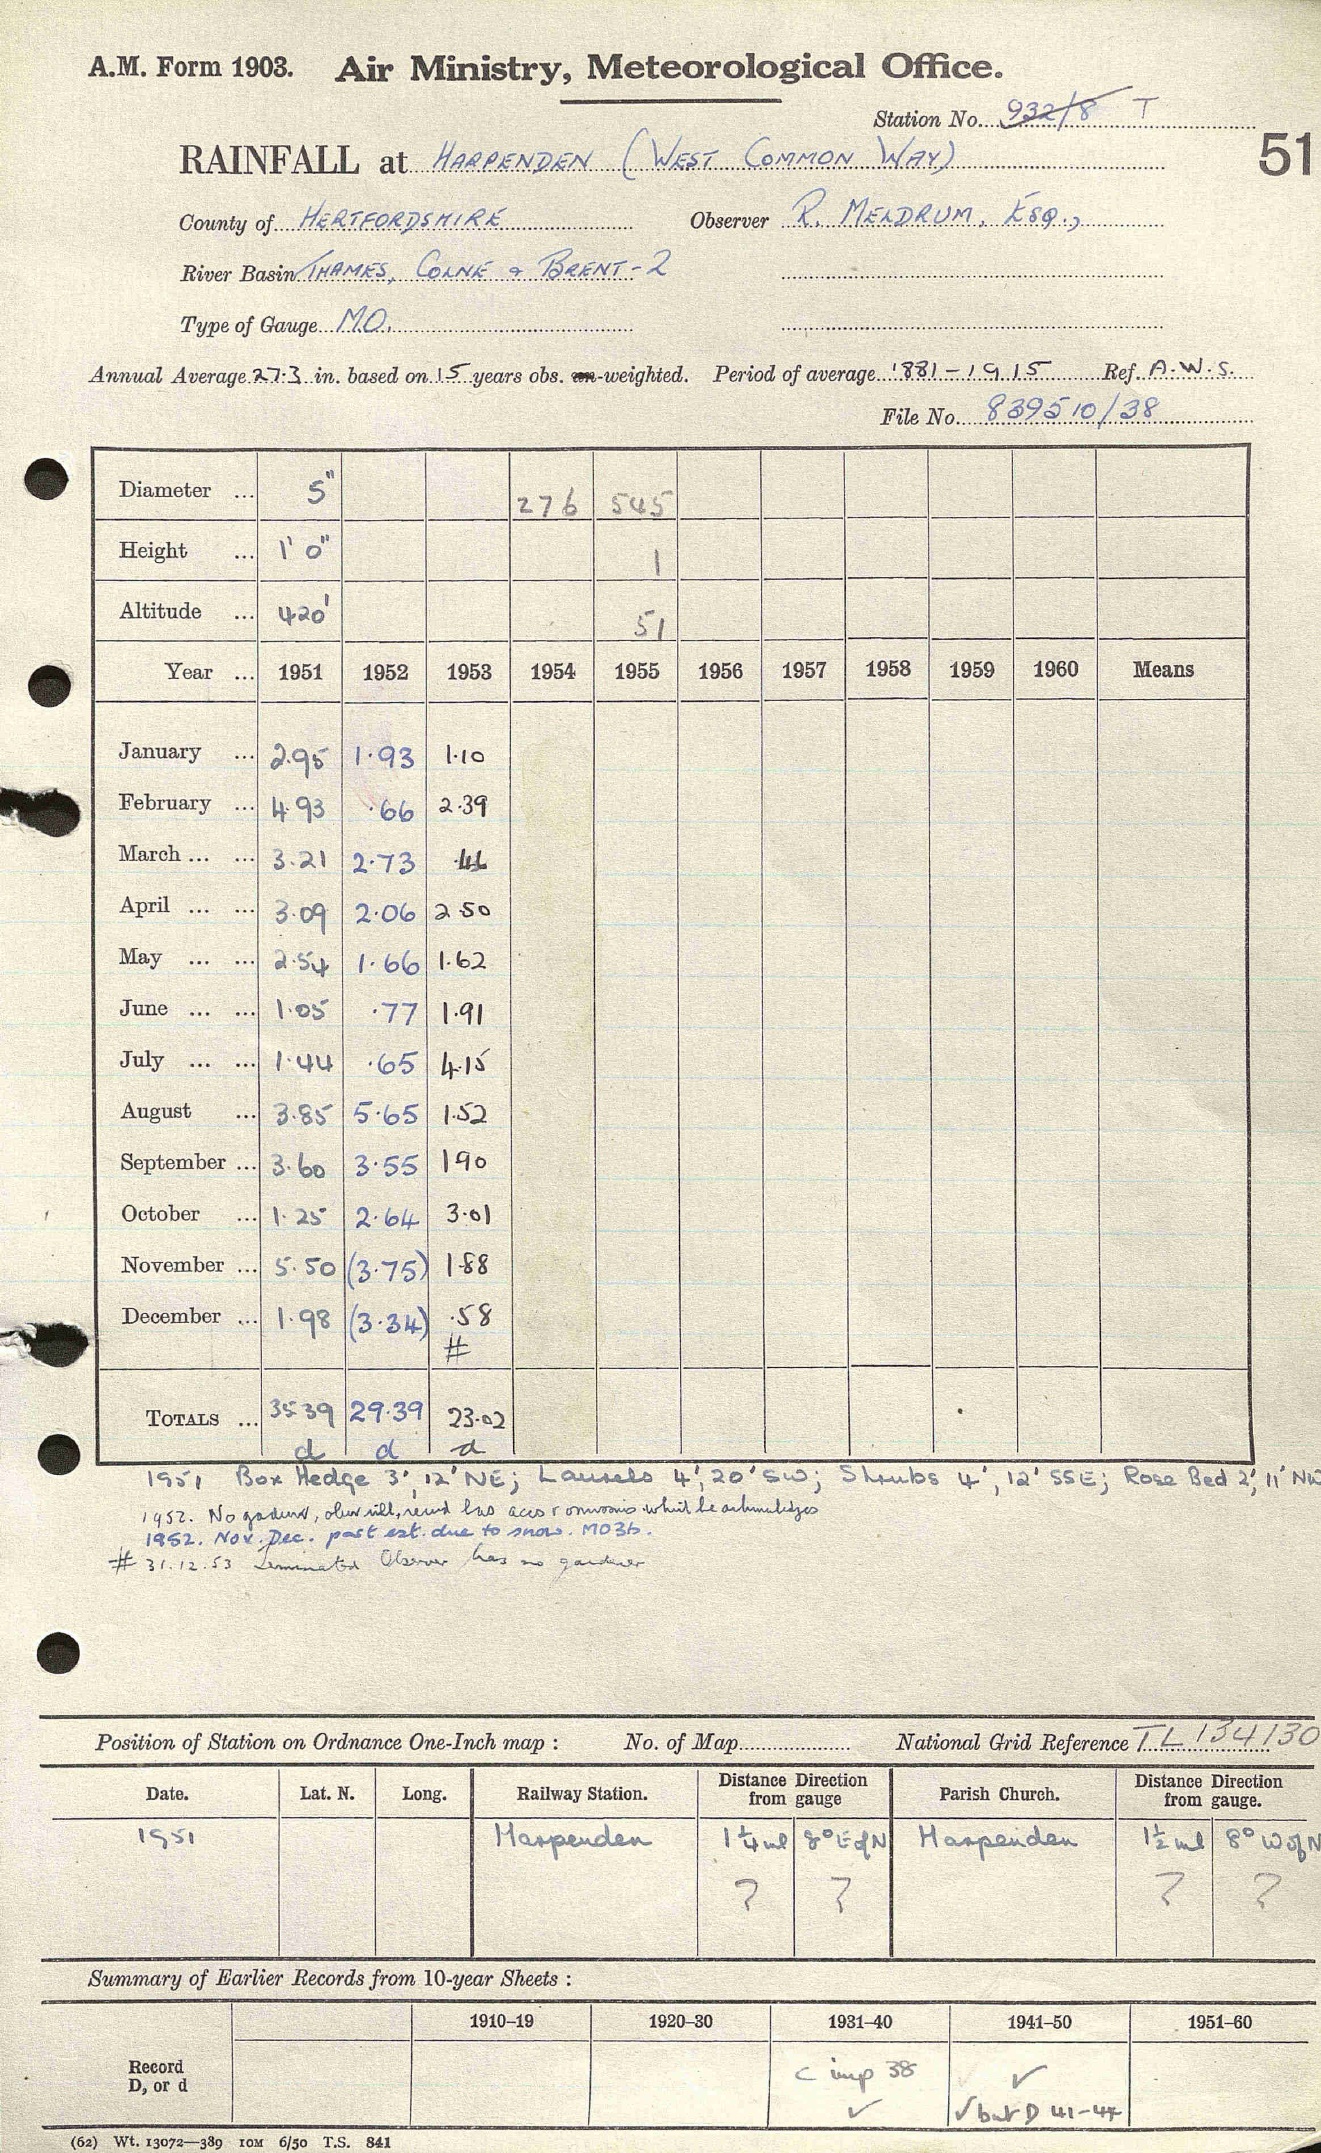 A.M. Form 1903. Air Ministry, Meteorological Office.
Station No. 932/8 T
RAINFALL at HARPENDEN (WEST COMMON WAY) 51
County of HERTFORDSHIRE Observer R. MELDRUM, ESQ.,
River Basin THAMES, COLNE & BRENT-2
Type of Gauge M.O.
Annual Average 27.3 in. based on 15 years obs. -weighted. Period of average 1881-1915 Ref. A.W.S.
File No. 839510/38
Diameter ... 5" 276 545
Height ... 1' 0" 1
Altitude ... 420' 51
Year ... 1951 1952 1953 1954 1955 1956 1957 1958 1959 1960 Means
January ... 2.95 1.93 1.10
February ... 4.93 .66 2.39
March ... ... 3.21 2.73
April ... ... 3.09 2.06 2.50
May ... ... 2.54 1.66 1.62
June ... ... 1.05 .77 1.91
July ... ... 1.44 .65 4.15
August ... 3.85 5.65 1.52
September ... 3.60 3.55 1 90
October ... 1.25 2.64 3.01
November ... 5.50 (3.75) 1.88
December ... 1.98 (3.34) .58
#
TOTALS ... 35.39 29.39 23.02
d d d
1951 Box Hedge 3', 12' NE; Laurels 4', 20' SW; Shrubs 4', 12' SSE; Rose Bed 2', 11' NW
1952. No gardener, obsr ill, record has accs & omissions which he acknowledges
1952. Nov. Dec. part est. due to snow. MO3b.
# 31.12.53 Terminated Observer has no gardener
Position of Station on Ordnance One-Inch map : No. of Map National Grid Reference TL 134130
Date. Lat. N. Long. Railway Station. Distance Direction from gauge Parish Church. Distance Direction from gauge.
1951 Harpenden 1¼ ml 8° E of N Harpenden 1½ ml 8° W of N
? ? ? ?
Summary of Earlier Records from 10-year Sheets :
1910–19 1920–30 1931–40 1941–50 1951–60
Record D, or d
C imp 38 ✓
✓ ✓ but D 41-44
(62) Wt. 13072—389 10M 6/50 T.S. 841